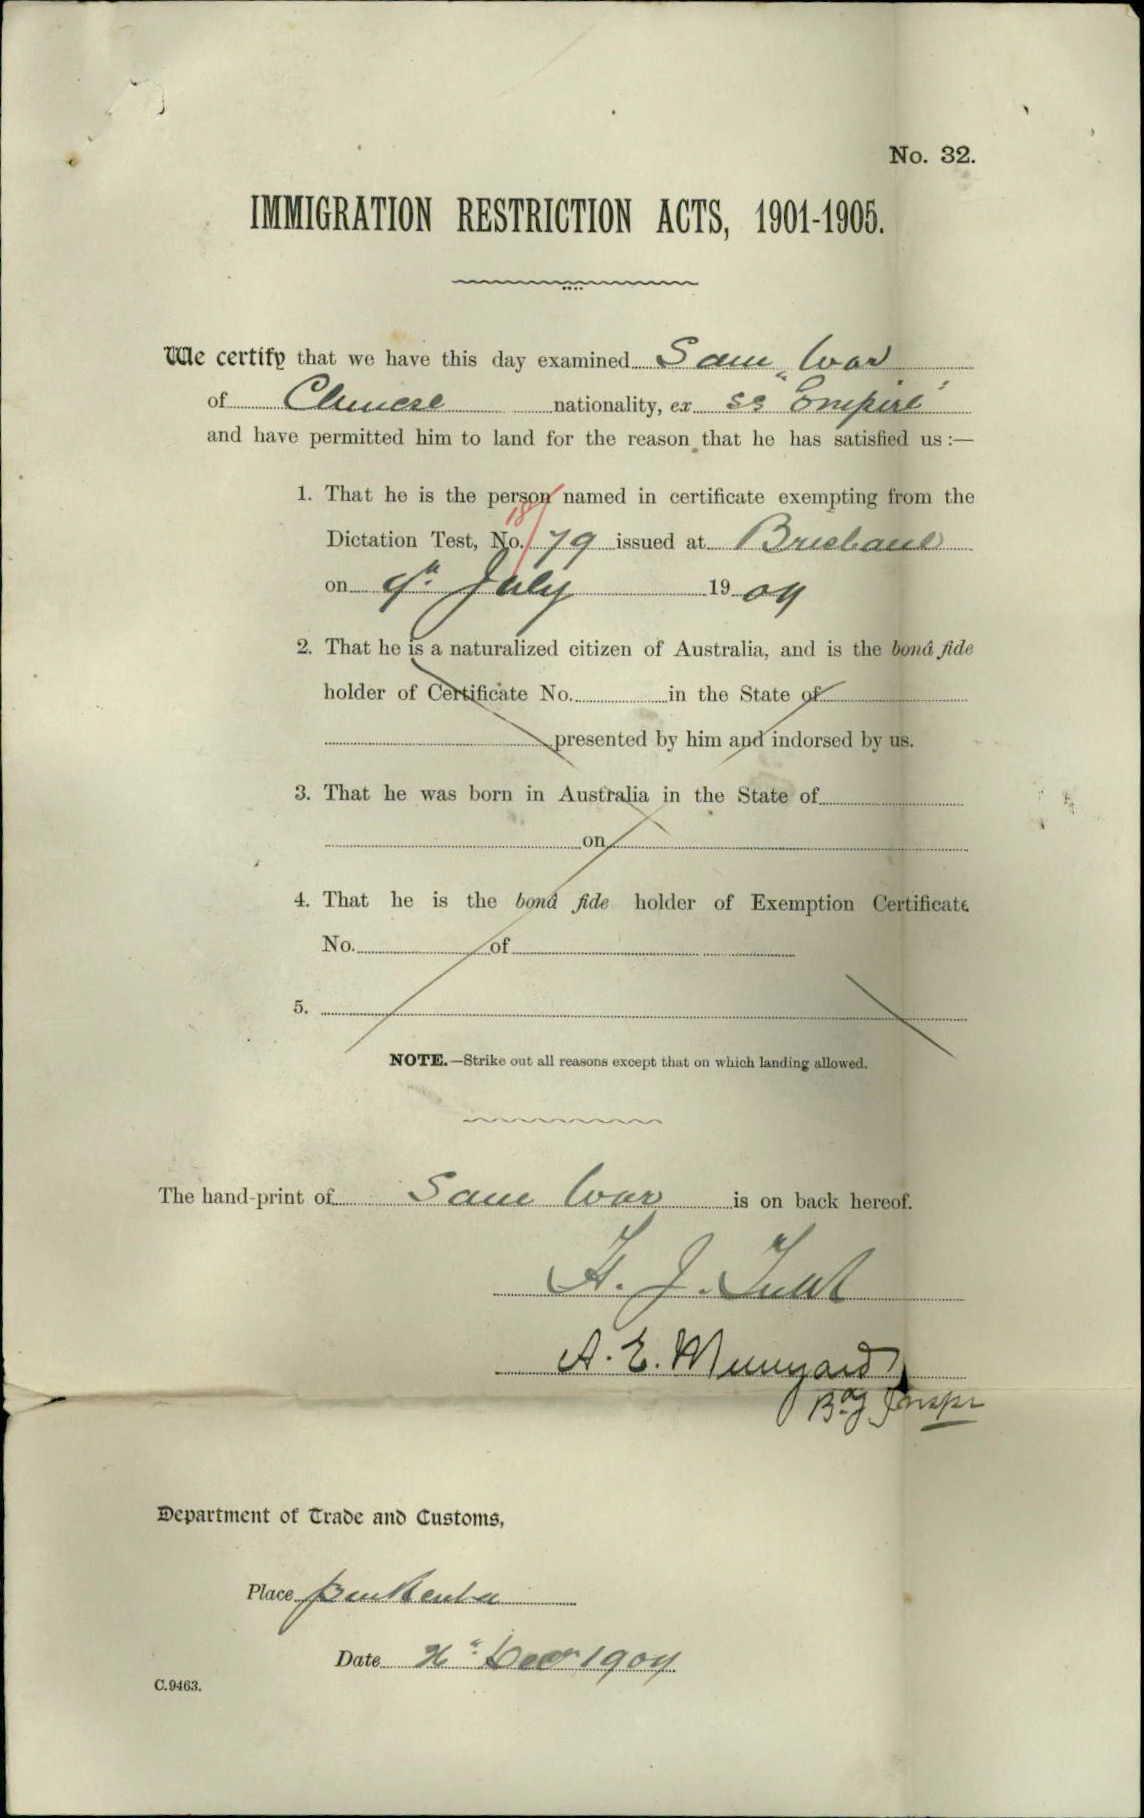 No. 32.
IMMIGRATION RESTRICTION ACTS, 1901-1905.
We certify that we have this day examined Sam War
of Chinese nationality, ex SS "Empire"
and have permitted him to land for the reason that he has satisfied us :—
1. That he is the person named in certificate exempting from the
18/
Dictation Test, No. 79 issued at Brisbane
on 9th July 1909
2. That he is a naturalized citizen of Australia, and is the bonâ fide
holder of Certificate No. in the State of
presented by him and indorsed by us.
3. That he was born in Australia in the State of
on
4. That he is the bonâ fide holder of Exemption Certificate
No. of
5.
NOTE.—Strike out all reasons except that on which landing allowed.
The hand-print of Sam War is on back hereof.
H. J.
A. E. Munyard
Bdg Inspr
Department of Trade and Customs,
Place Pinkenba
Date Decr 1909
C.9463.